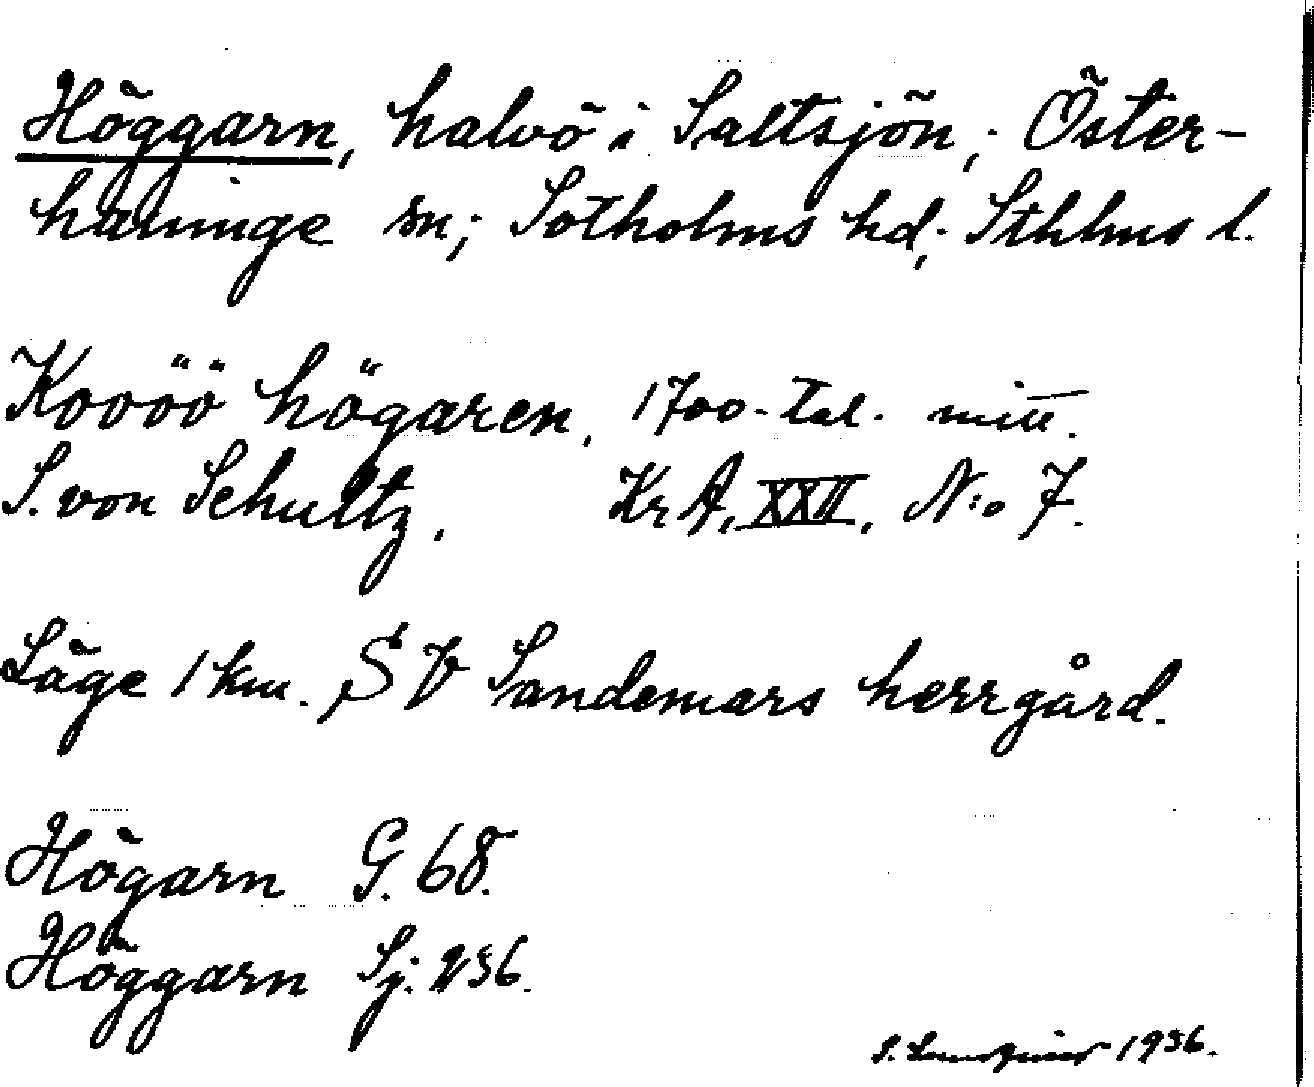 Höggarn, halvö i Saltsjön; Öster-
haninge sn; Sotholms hd; Sthlms l.
Kovöö högaren, 1700-tal. mitt.
S. von Schultz, KrA, XXII, N:o 7.
Läge 1 km. SV Sandemars herrgård.
Högarn G. 68.
Höggarn Sj. 236.
S. 1936.